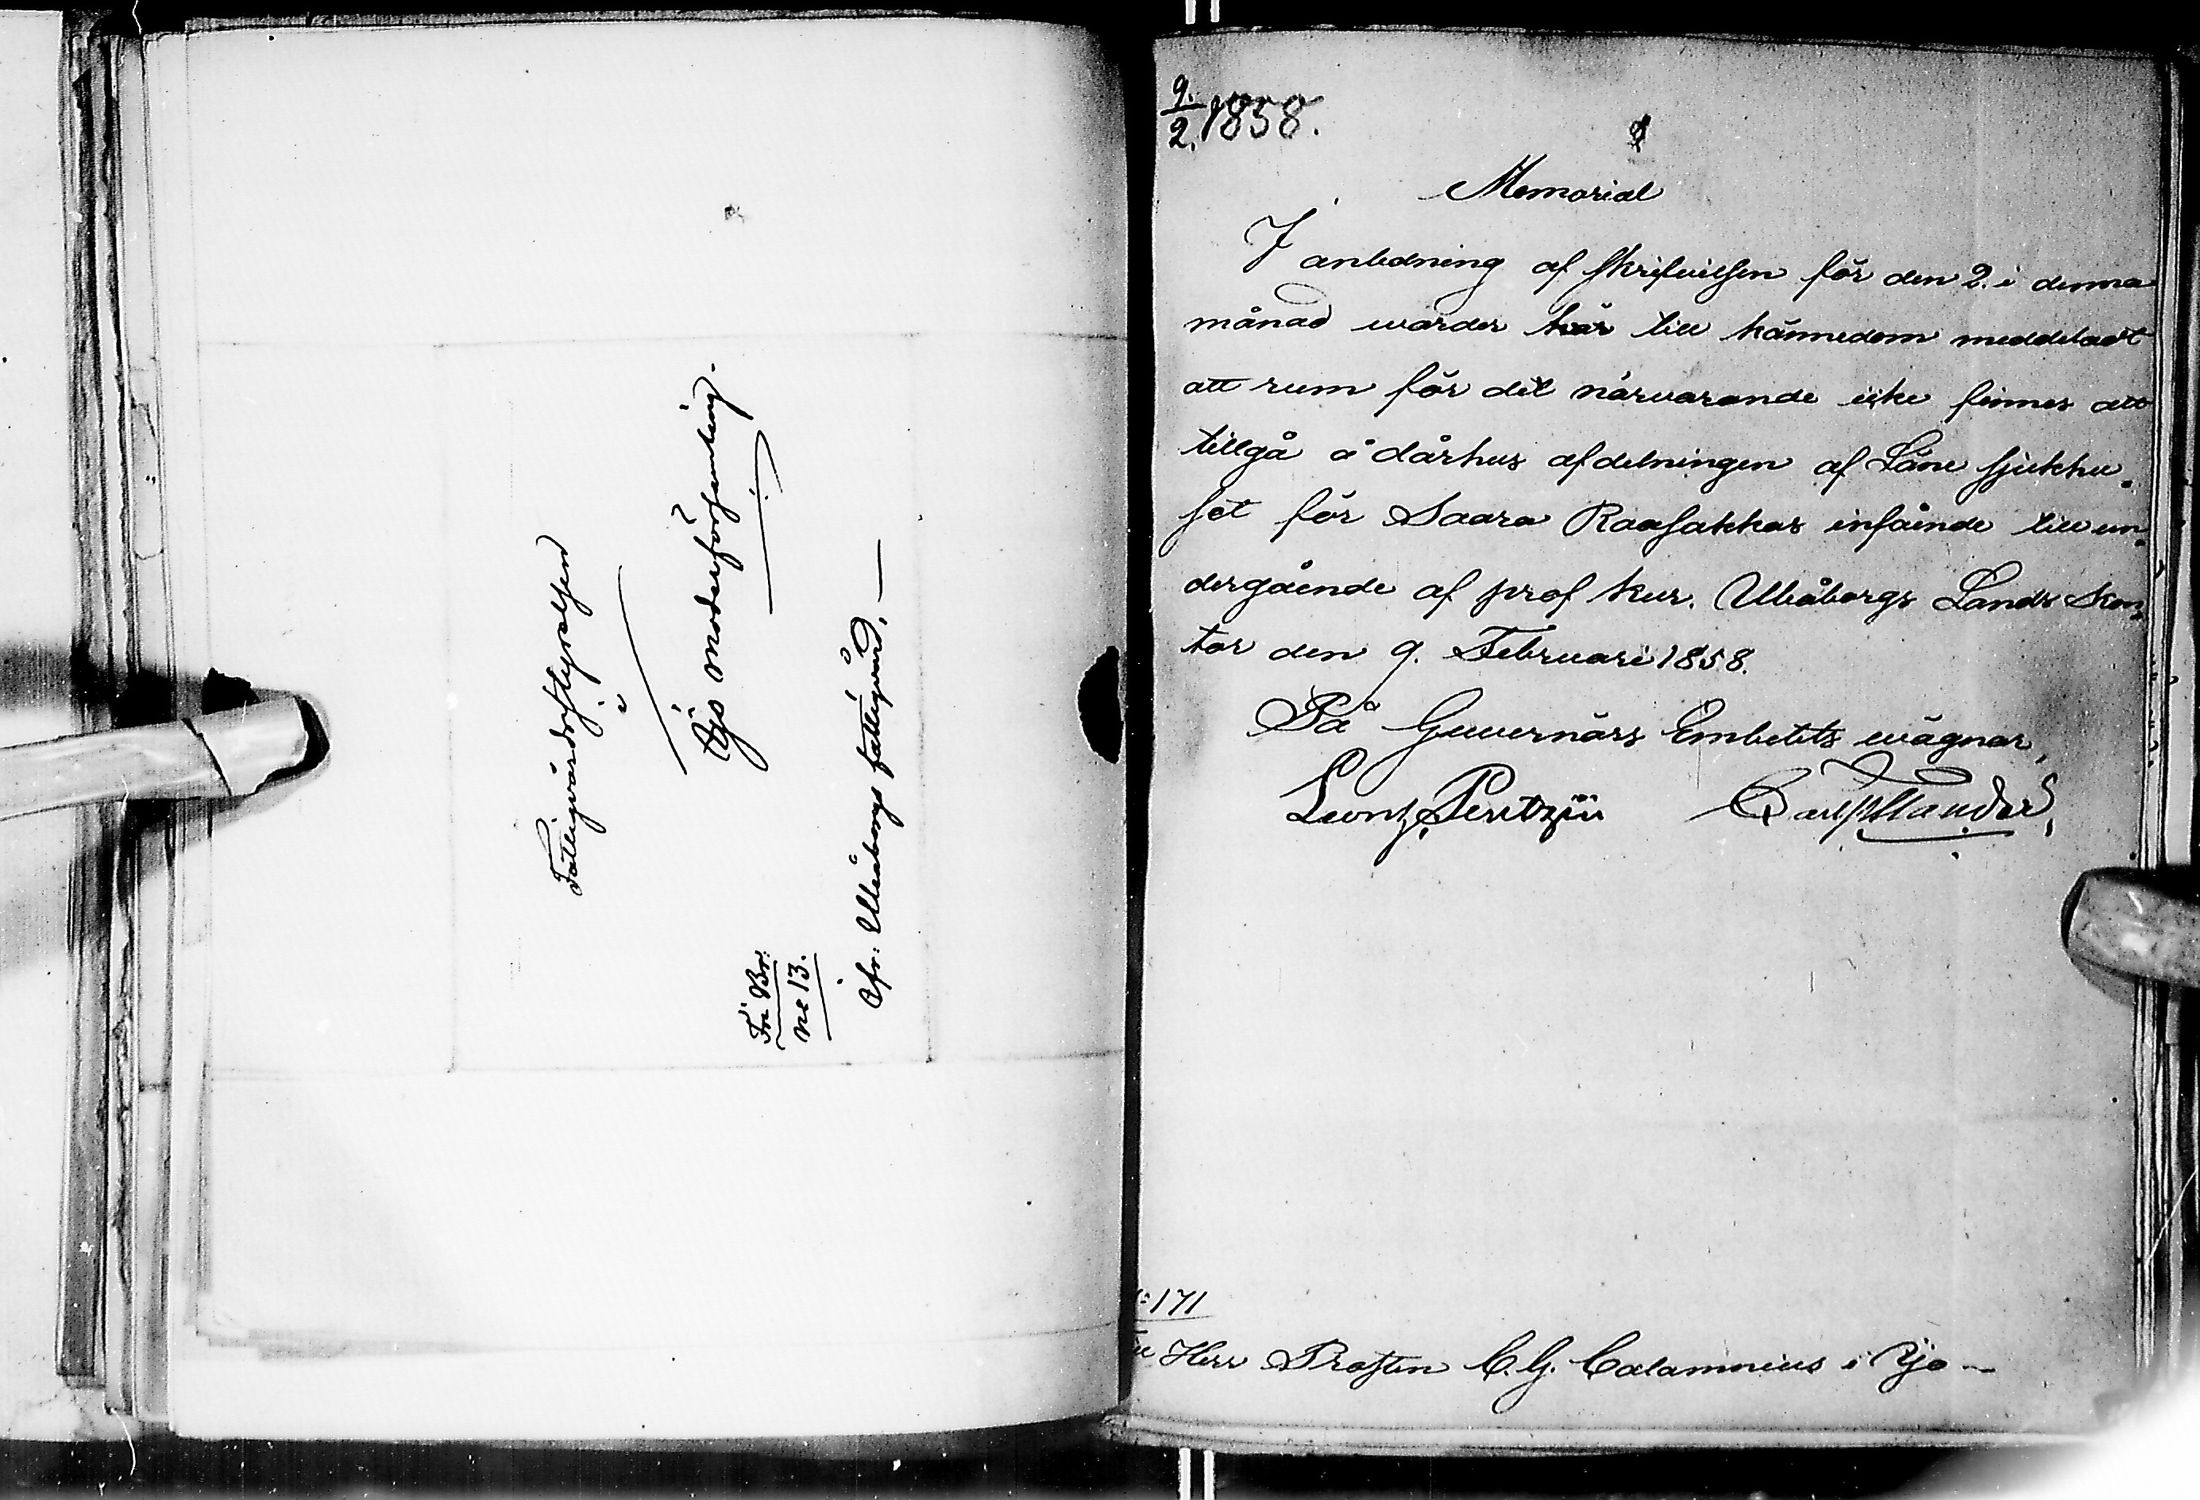 Fattigvårdsstyrelsen
i
Ijo Moderförsamling.
Fri Br:
No 13.
Ifr: Uleåborgs fattigvård.
9./2. 1858.
Memorial
I anledning af skrifvelsen för den 2. i denna
månad warder här till kännedom meddeladt
att rum för det närvarande icke finnes att
tillgå å dårhus afdelningen af Läne sjukhu-
set för Saara Raasakkas insände till un-
dergående af prof kur. Uleåborgs Lands Kon-
tor den 9. Februari 1858.
På Guvernörs Embetets wägnar,
:171
Till Herr Prosten C. G. Calamnius i Ijo